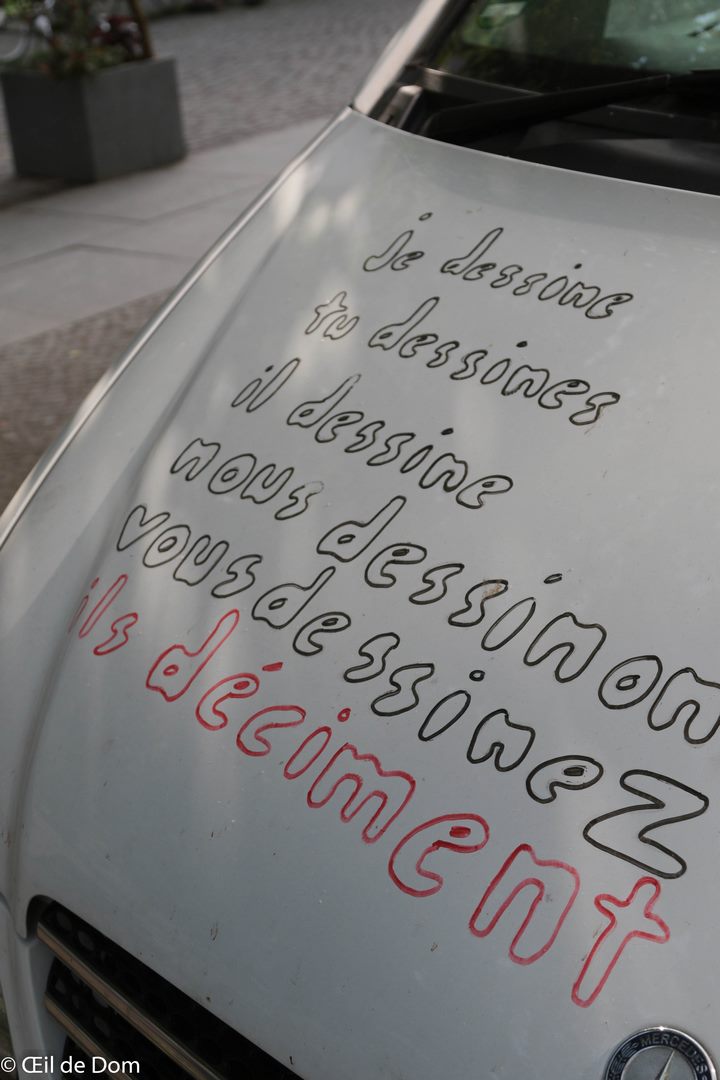 je dessine
tu dessines
il dessine
nous dessinon
vous dessinez
ils déciment
MERCEDES
© Œil de Dom